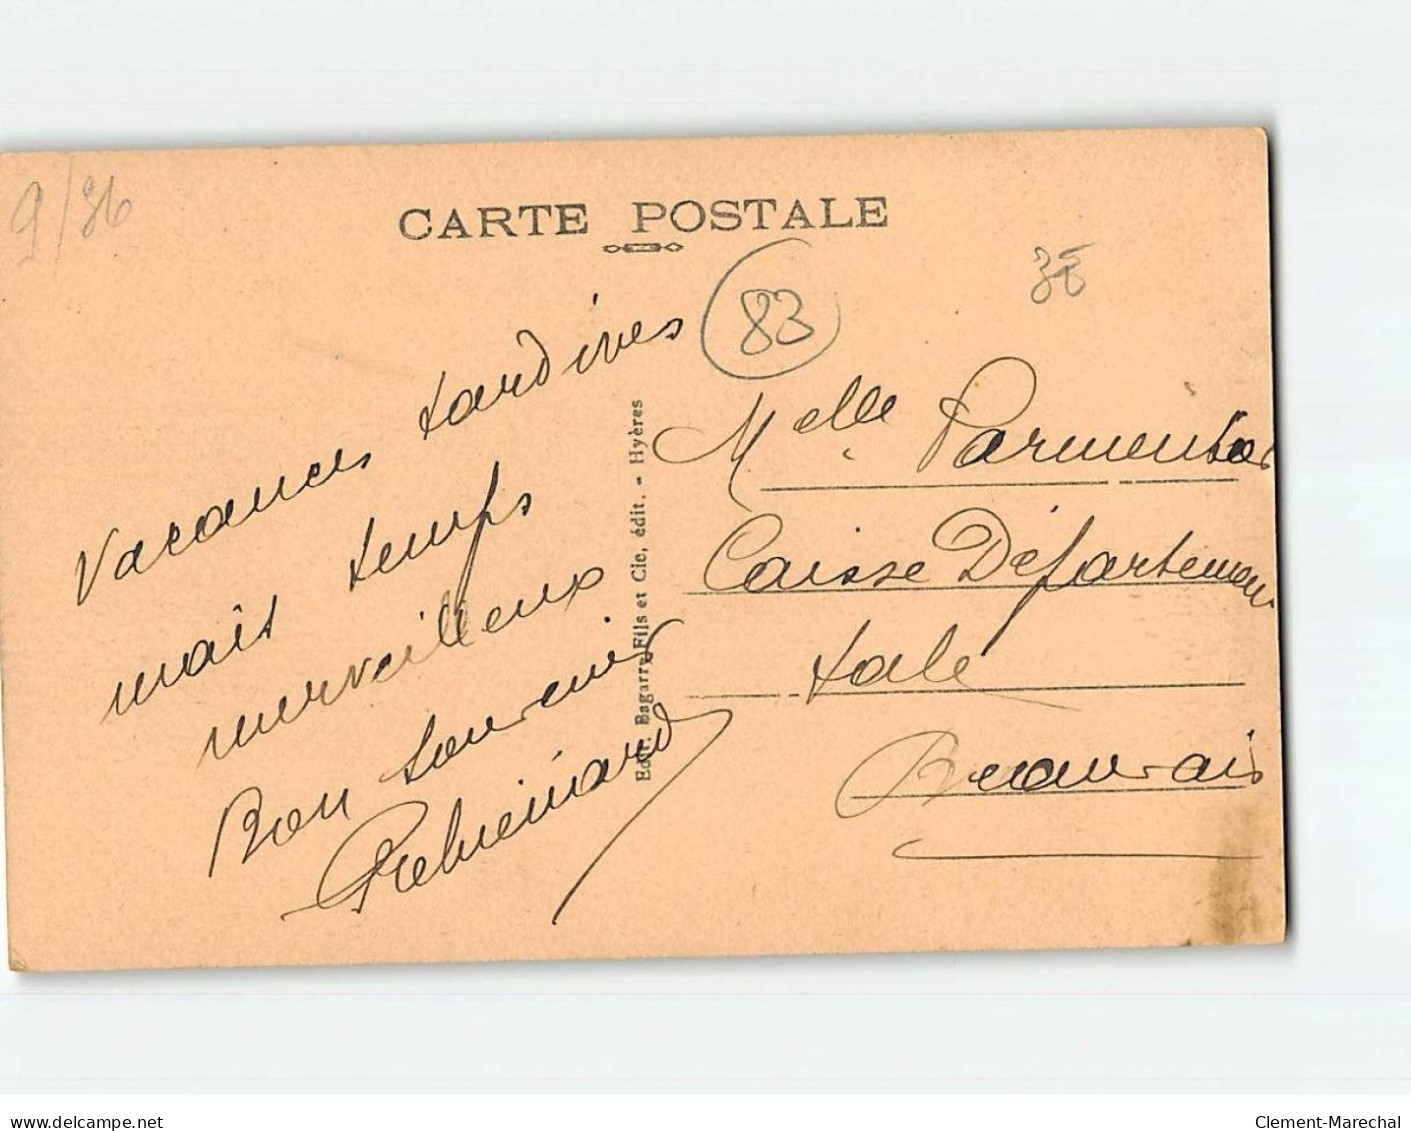 9/36
CARTE POSTALE
83
3E
Vacances tardives
mais temps
merveilleux
Bon souvenir
Edit. Bagarry Fils et Cie, édit. - Hyères
Melle Parmentier
Caisse Départemen
tale
Beauvais
delcampe.net
Clement-Marechal